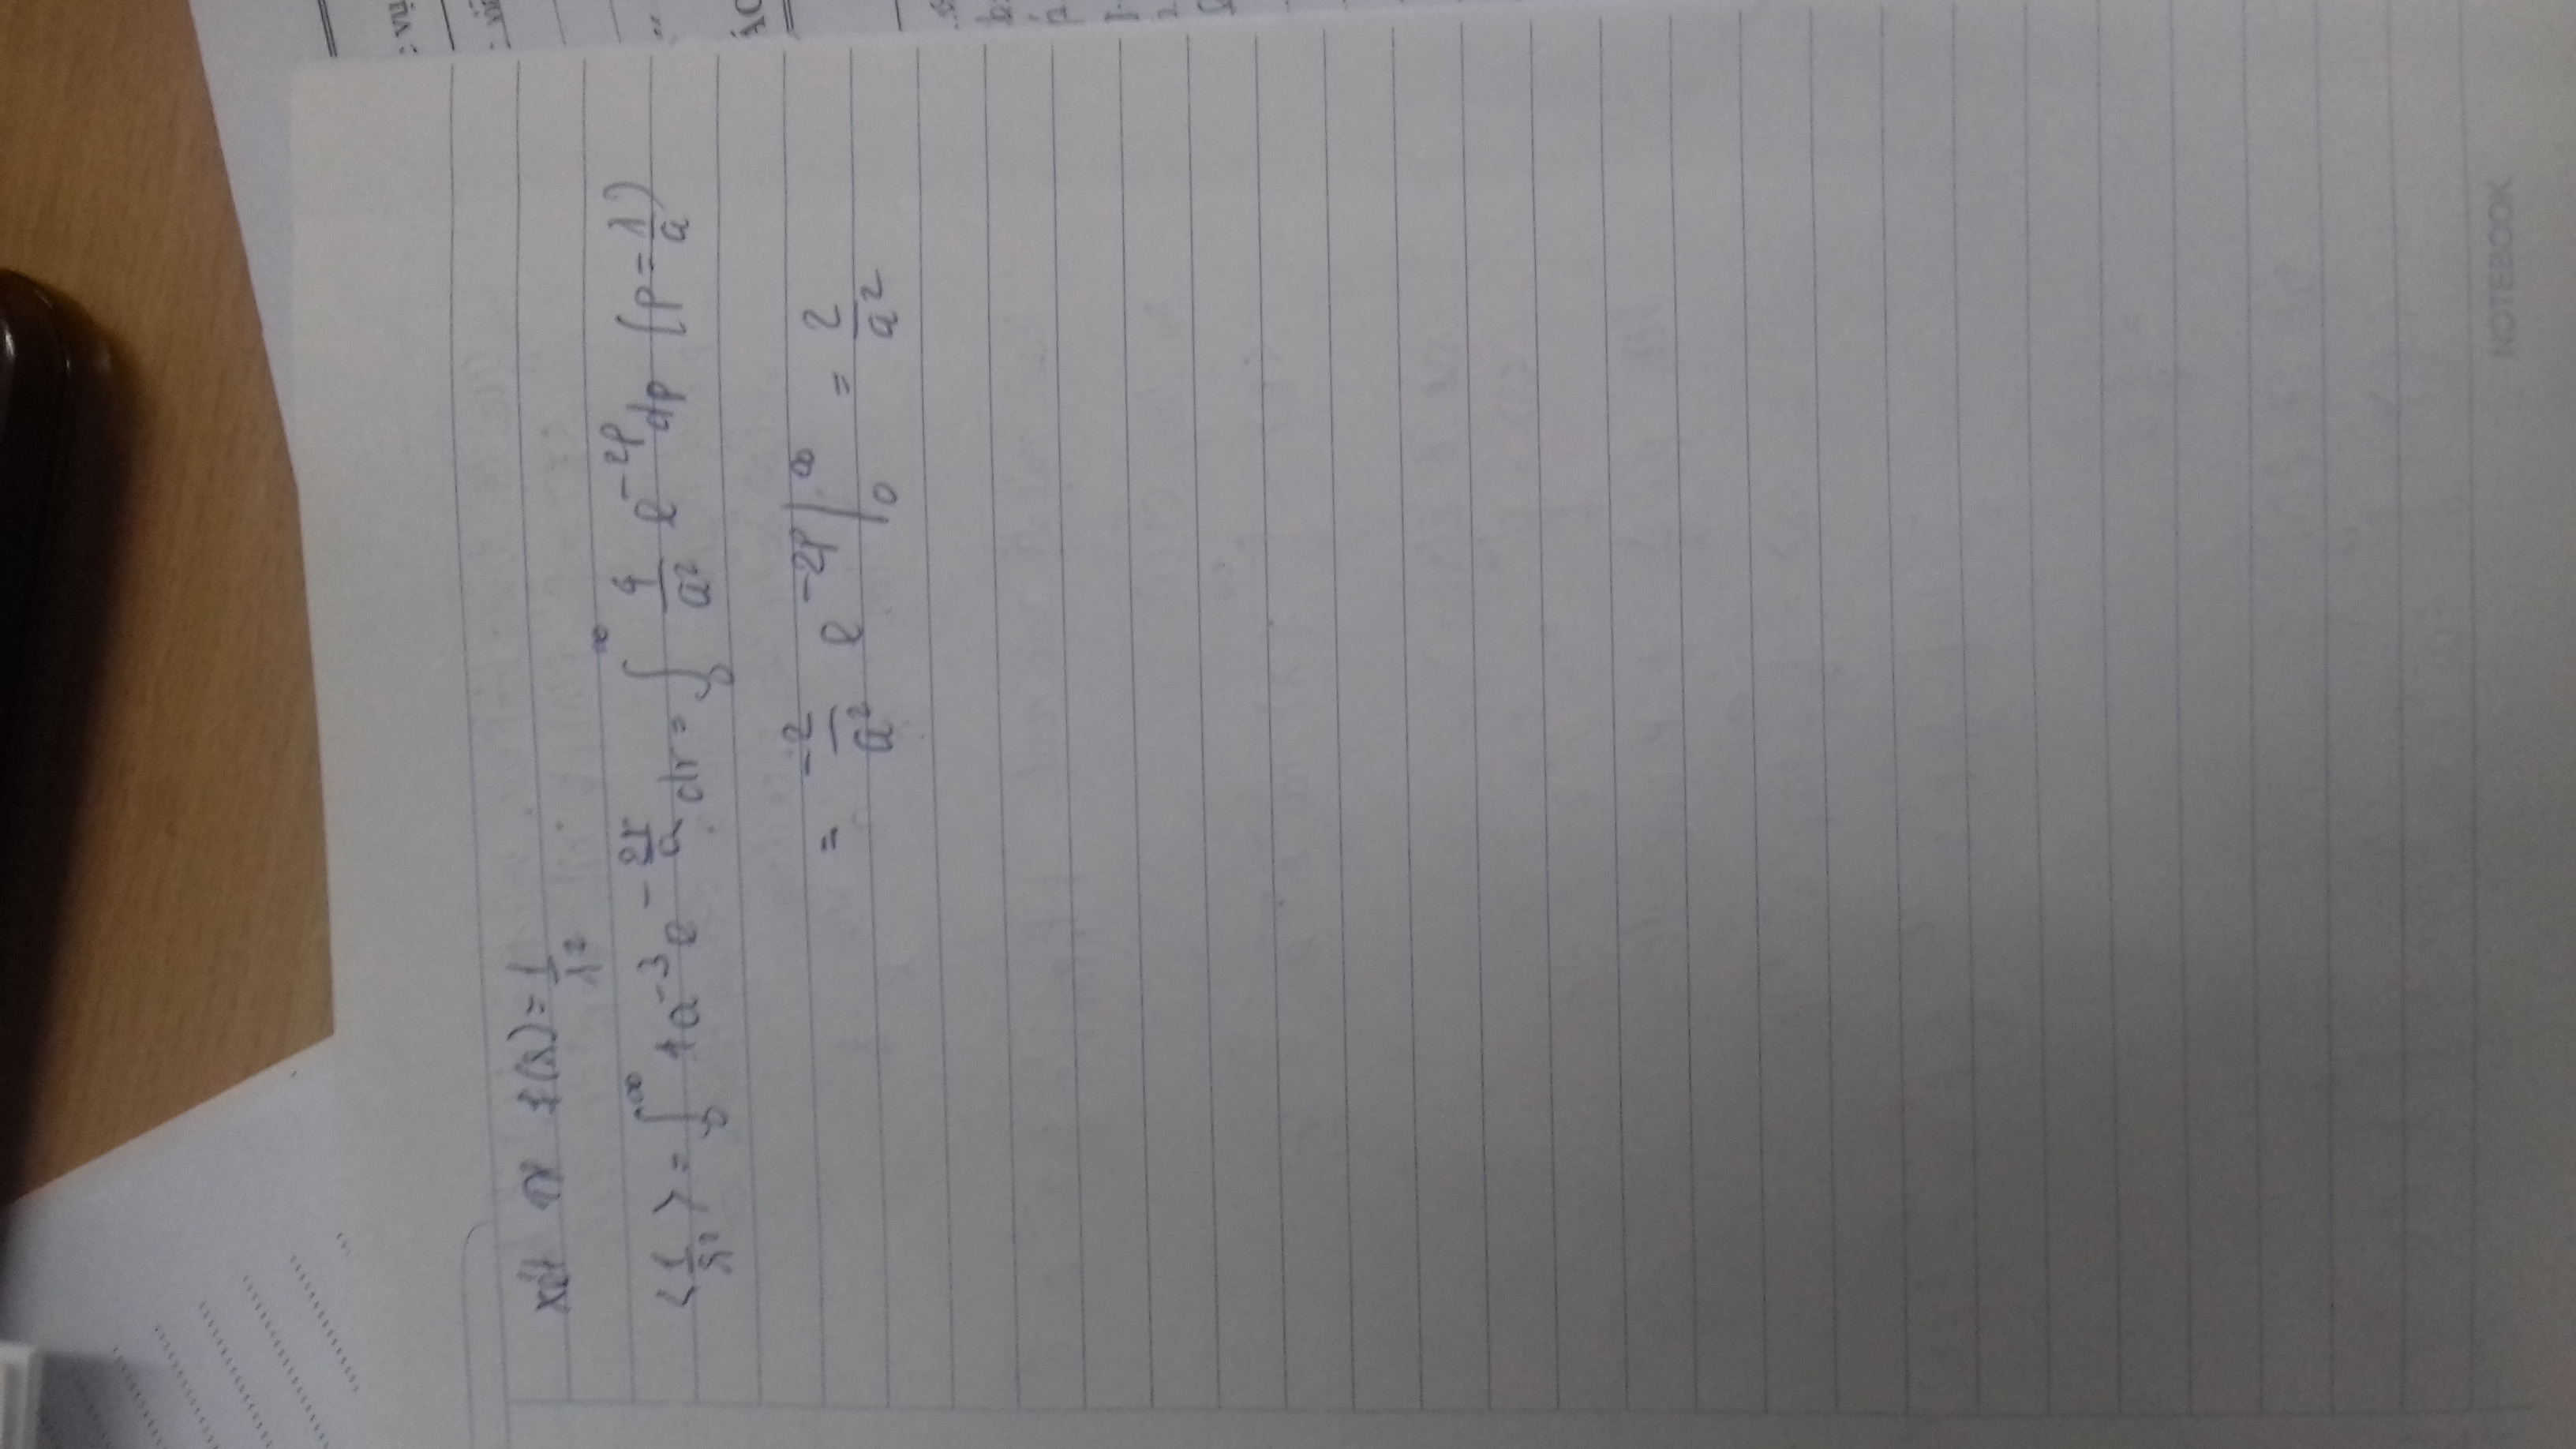 xét f(r) = 1/r²
⟨1/r²⟩ = ∫₀^∞ 4a⁻³ e^(-2r/a) dr = ∫₀^∞ 4/a² e^(-2ρ) dρ (ρ = r/a)
= -2/a² e^(-2ρ) |₀^∞ = 2/a²
NOTEBOOK